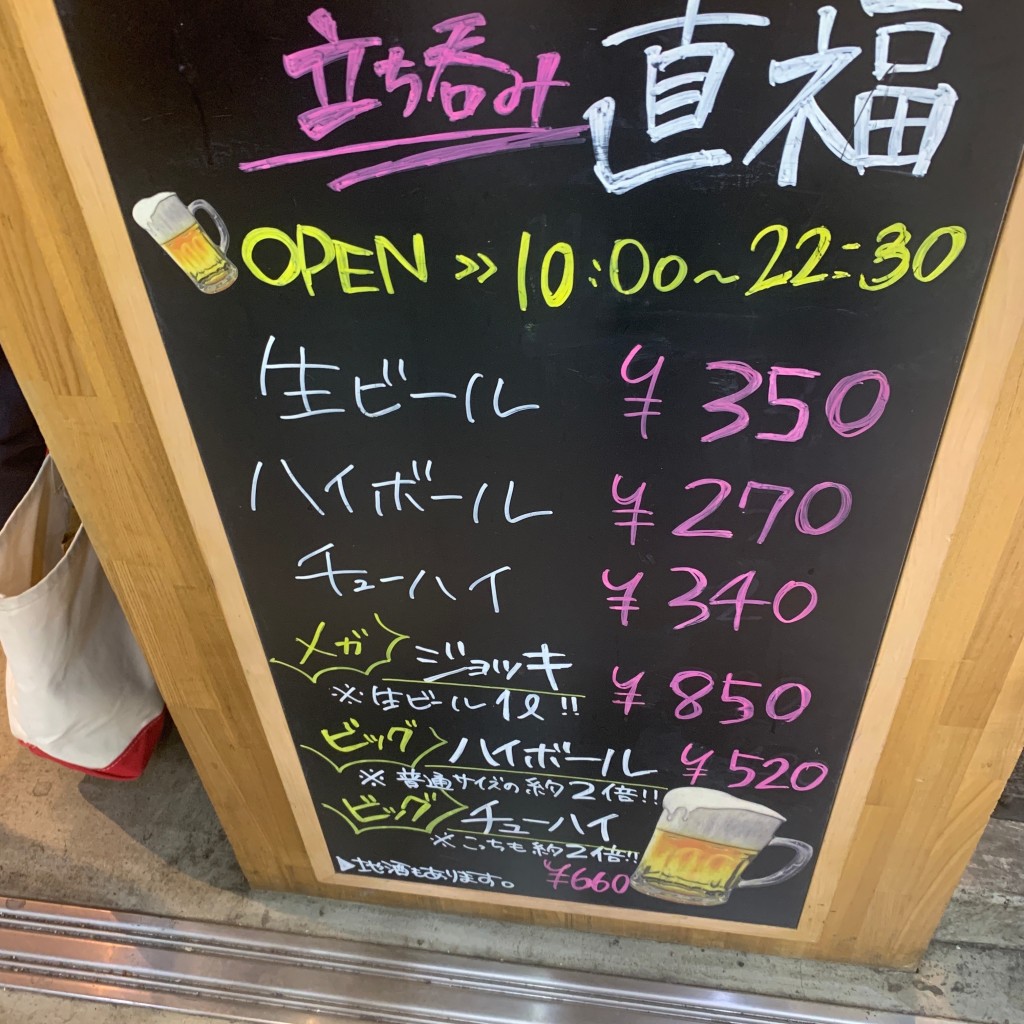 立ち呑み 直福
OPEN >> 10:00～22:30
生ビール ¥350
ハイボール ¥270
チューハイ ¥340
メガ ジョッキ ¥850
※生ビール1ℓ!!
ビッグ ハイボール ¥520
※普通サイズの約2倍!!
ビッグ チューハイ
※こっちも約2倍!!
▶地酒もあります。 ¥660